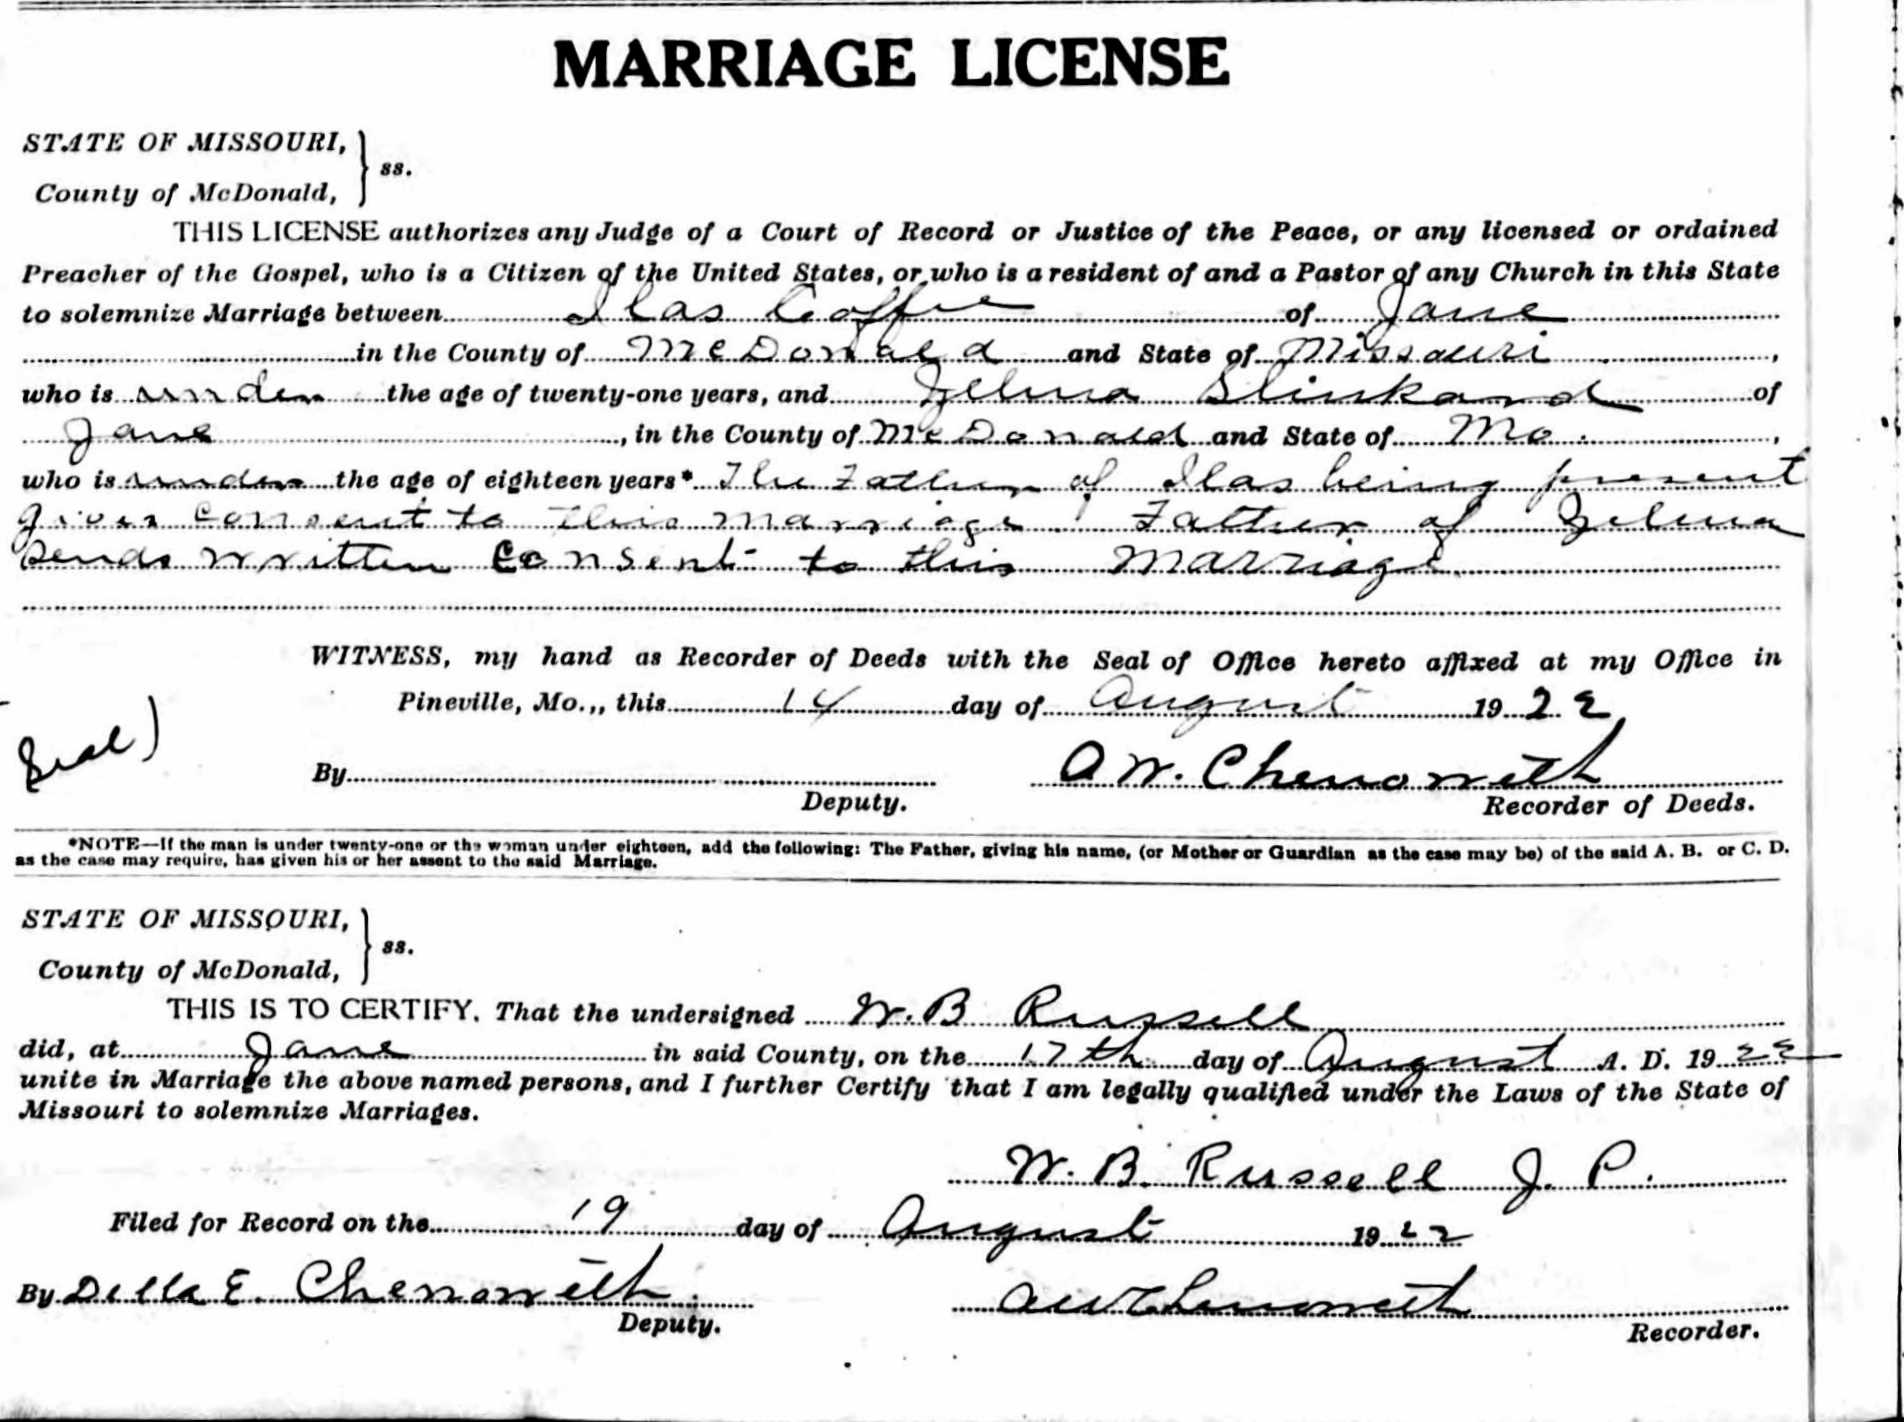 MARRIAGE LICENSE
STATE OF MISSOURI,
County of McDonald, } ss.
THIS LICENSE authorizes any Judge of a Court of Record or Justice of the Peace, or any licensed or ordained
Preacher of the Gospel, who is a Citizen of the United States, or who is a resident of and a Pastor of any Church in this State
to solemnize Marriage between Ilas Coffee of Jane
in the County of McDonald and State of Missouri,
who is under the age of twenty-one years, and Zelma Slinkard of
Jane, in the County of McDonald and State of Mo.,
who is under the age of eighteen years* The Father of Ilas being present
gives consent to this marriage. Father of Zelma
sends written consent to this marriage.
WITNESS, my hand as Recorder of Deeds with the Seal of Office hereto affixed at my Office in
Pineville, Mo.,, this 14 day of August 1922
Seal)
By
A W. Chenoweth
Deputy.
Recorder of Deeds.
*NOTE—If the man is under twenty-one or the woman under eighteen, add the following: The Father, giving his name, (or Mother or Guardian as the case may be) of the said A. B. or C. D.
as the case may require, has given his or her assent to the said Marriage.
STATE OF MISSOURI,
County of McDonald, } ss.
THIS IS TO CERTIFY. That the undersigned W. B Russell
did, at Jane in said County, on the 17th day of August A. D. 1922
unite in Marriage the above named persons, and I further Certify that I am legally qualified under the Laws of the State of
Missouri to solemnize Marriages.
W. B. Russell J. P.
Filed for Record on the 19 day of August 1922
By Della E. Chenoweth
AW Chenoweth
Deputy.
Recorder.